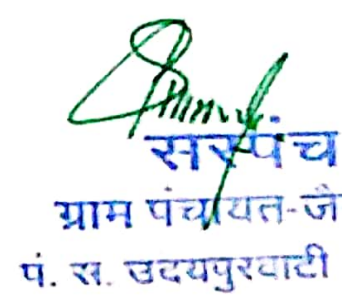 सरपंच
ग्राम पंचायत-जै
पं. स. उदयपुरवाटी